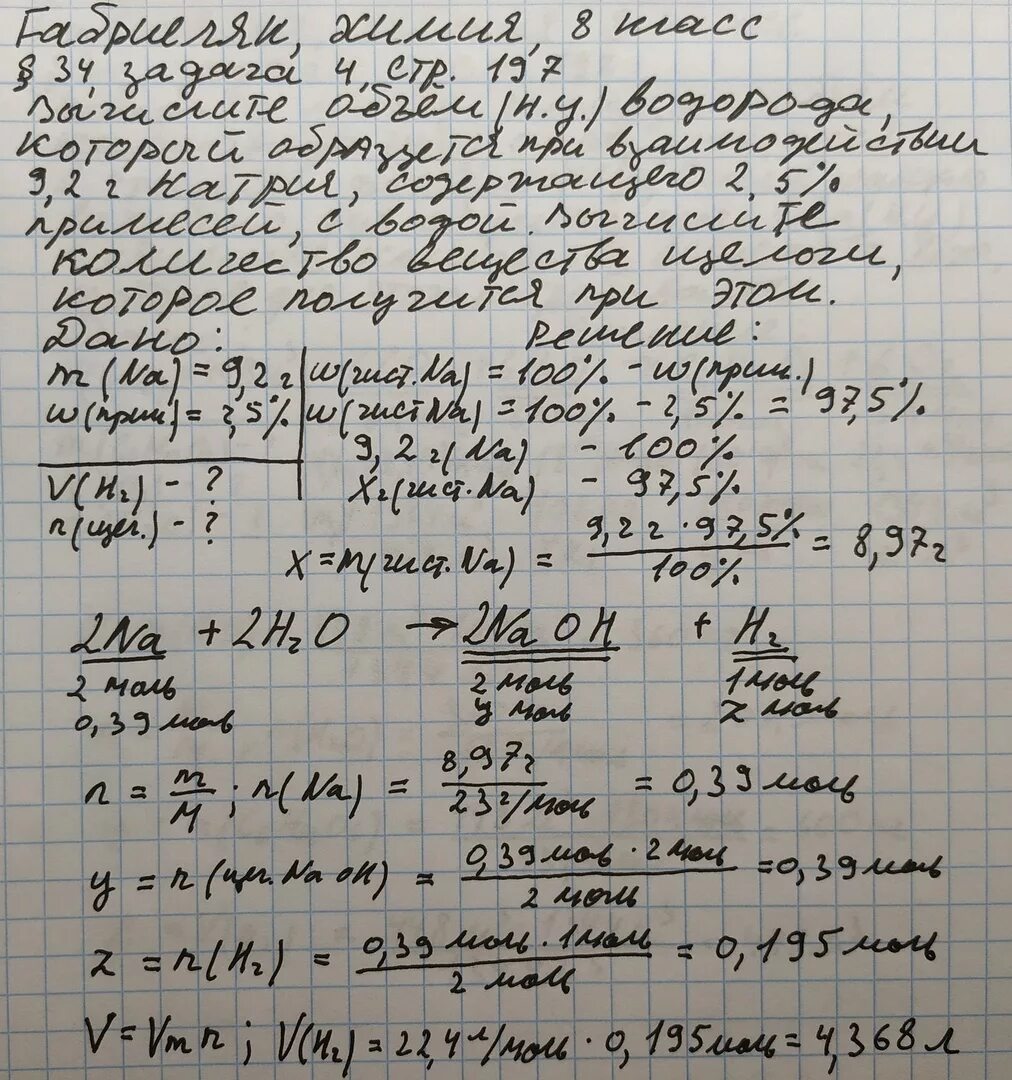 Габриелян, химия, 8 класс
§ 34, задача 4, стр. 197
Вычислите объём (н.у.) водорода,
который образуется при взаимодействии
9,2 г натрия, содержащего 2,5%
примесей, с водой. Вычислите
количество вещества щелочи,
которое получится при этом.
Дано:
Решение:
m(Na) = 9,2 г
w(чист.Na) = 100% - w(прим.)
w(прим) = 2,5%
w(чист Na) = 100% - 2,5% = 97,5%
9,2 г(Na) - 100%
V(H₂) - ?
Xг(чист.Na) - 97,5%
n(щел.) - ?
X = m(чист.Na) = 9,2 г · 97,5% / 100% = 8,97 г
2Na + 2H₂O → 2NaOH + H₂
2 моль 2 моль 1 моль
0,39 моль y моль z моль
n = m/M; n(Na) = 8,97 г / 23 г/моль = 0,39 моль
y = n(щел. NaOH) = 0,39 моль · 2 моль / 2 моль = 0,39 моль
z = n(H₂) = 0,39 моль · 1 моль / 2 моль = 0,195 моль
V = Vm n; V(H₂) = 22,4 л/моль · 0,195 моль = 4,368 л